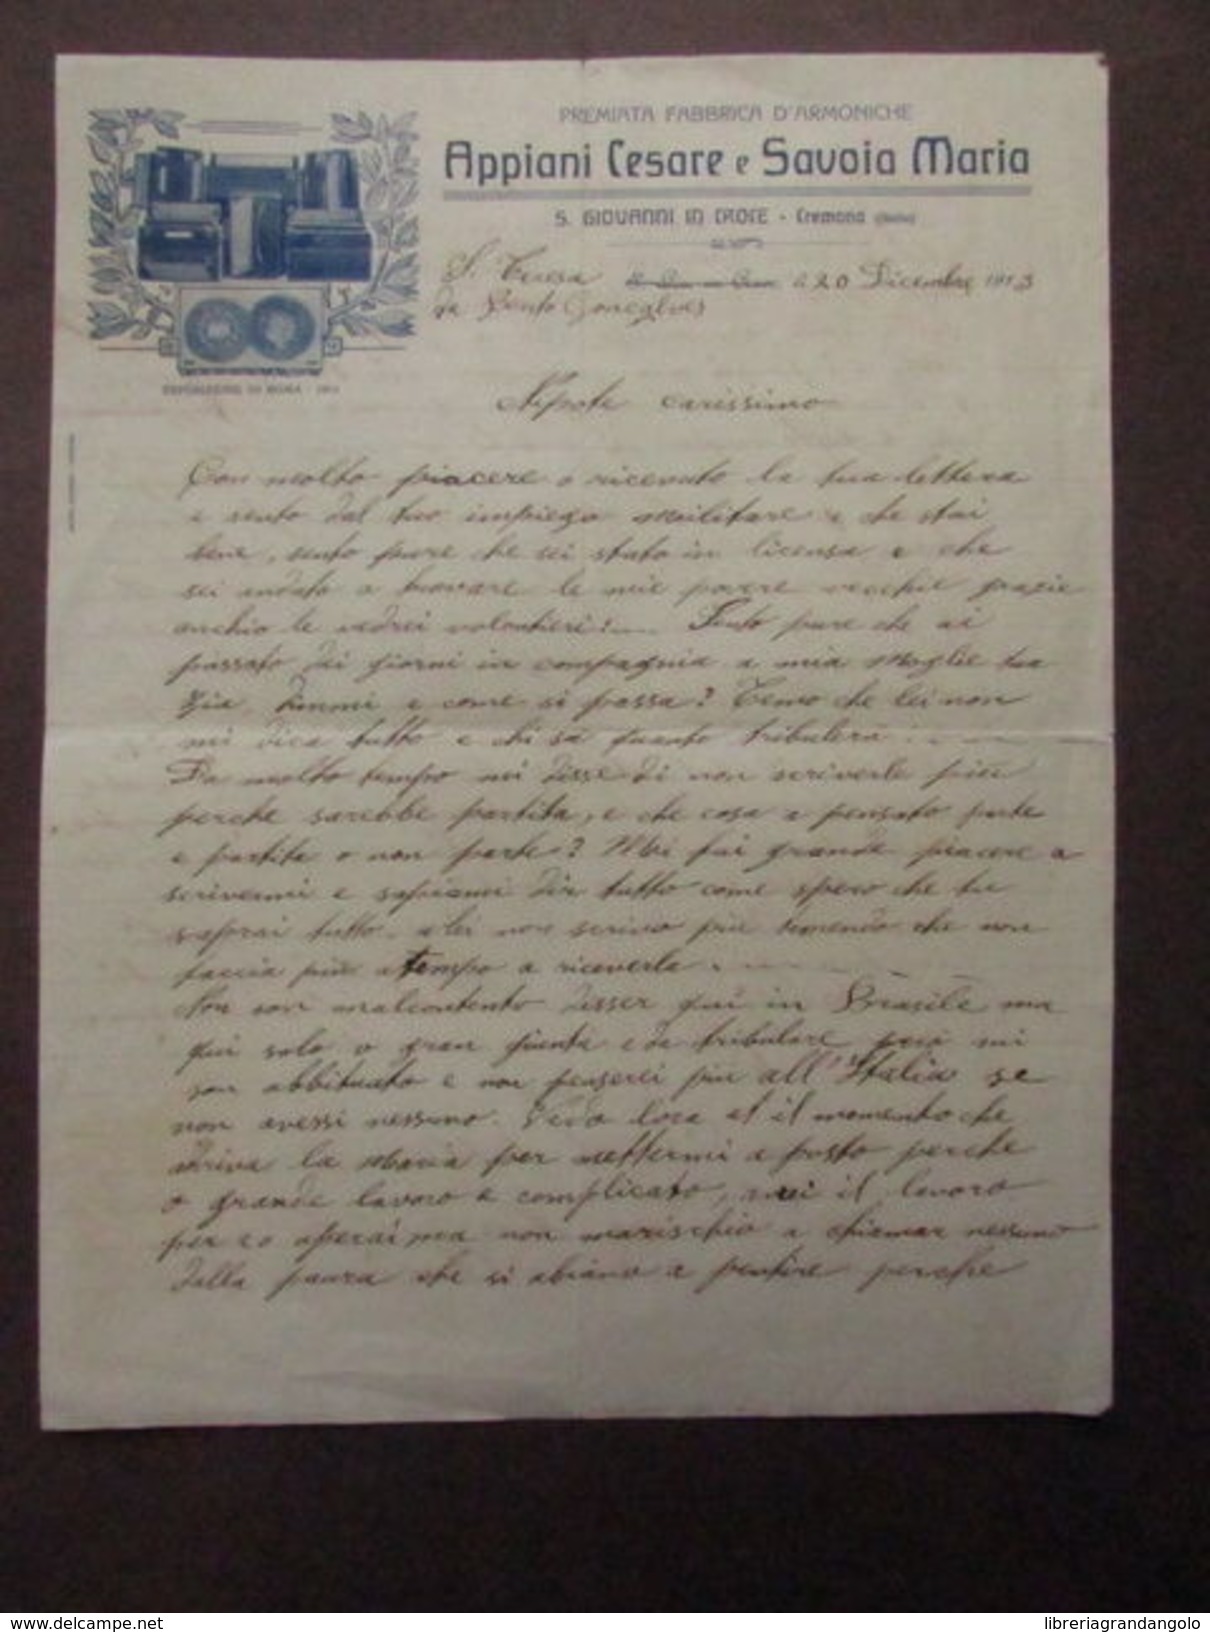 PREMIATA FABBRICA D'ARMONICHE
Appiani Cesare e Savoia Maria
S. GIOVANNI IN CROCE - Cremona (Italia)
S. Teresa a 20 Dicembre 1913
da Bento Gonçalves
ESPOSIZIONE DI ROMA
Nipote carissimo
Con molto piacere o ricevuto la tua lettera
e sento dal tuo impiego militare e che stai
bene, sento pure che sei stato in licensa e che
sei andato a trovare le mie povere vecchie grazie
anchio le vedrei volontieri! Sento pure che ai
passato dei giorni in compagnia a mia Moglie tua
Zia, dimmi e come si passa? Temo che lei non
mi dica tutto e chi sa quanto tribulerà
Da molto tempo mi disse di non scriverle piu
perche sarebbe partita, e che cosa a pensato parte
e partita o non parte? Mi fai grande piacere a
scrivermi e sapiami dir tutto come spero che tu
saprai tutto. a lei non scrivo piu temendo che non
faccia piu atempo a riceverla.
Non son malcontento disser qui in Brasile ma
qui solo o gran pianta e da tribulare però mi
son abbituato e non penserei piu all'Italia se
non avessi nessuno. Vedo lora et il momento che
ariva la Maria per mettermi a posto perche
o grande lavoro e complicato, avrei il lavoro
per 20 operai ma non marischio a chiamar nessuno
dalla paura che si abiano a pentire perche
libreriagrandangolo
delcampe.net